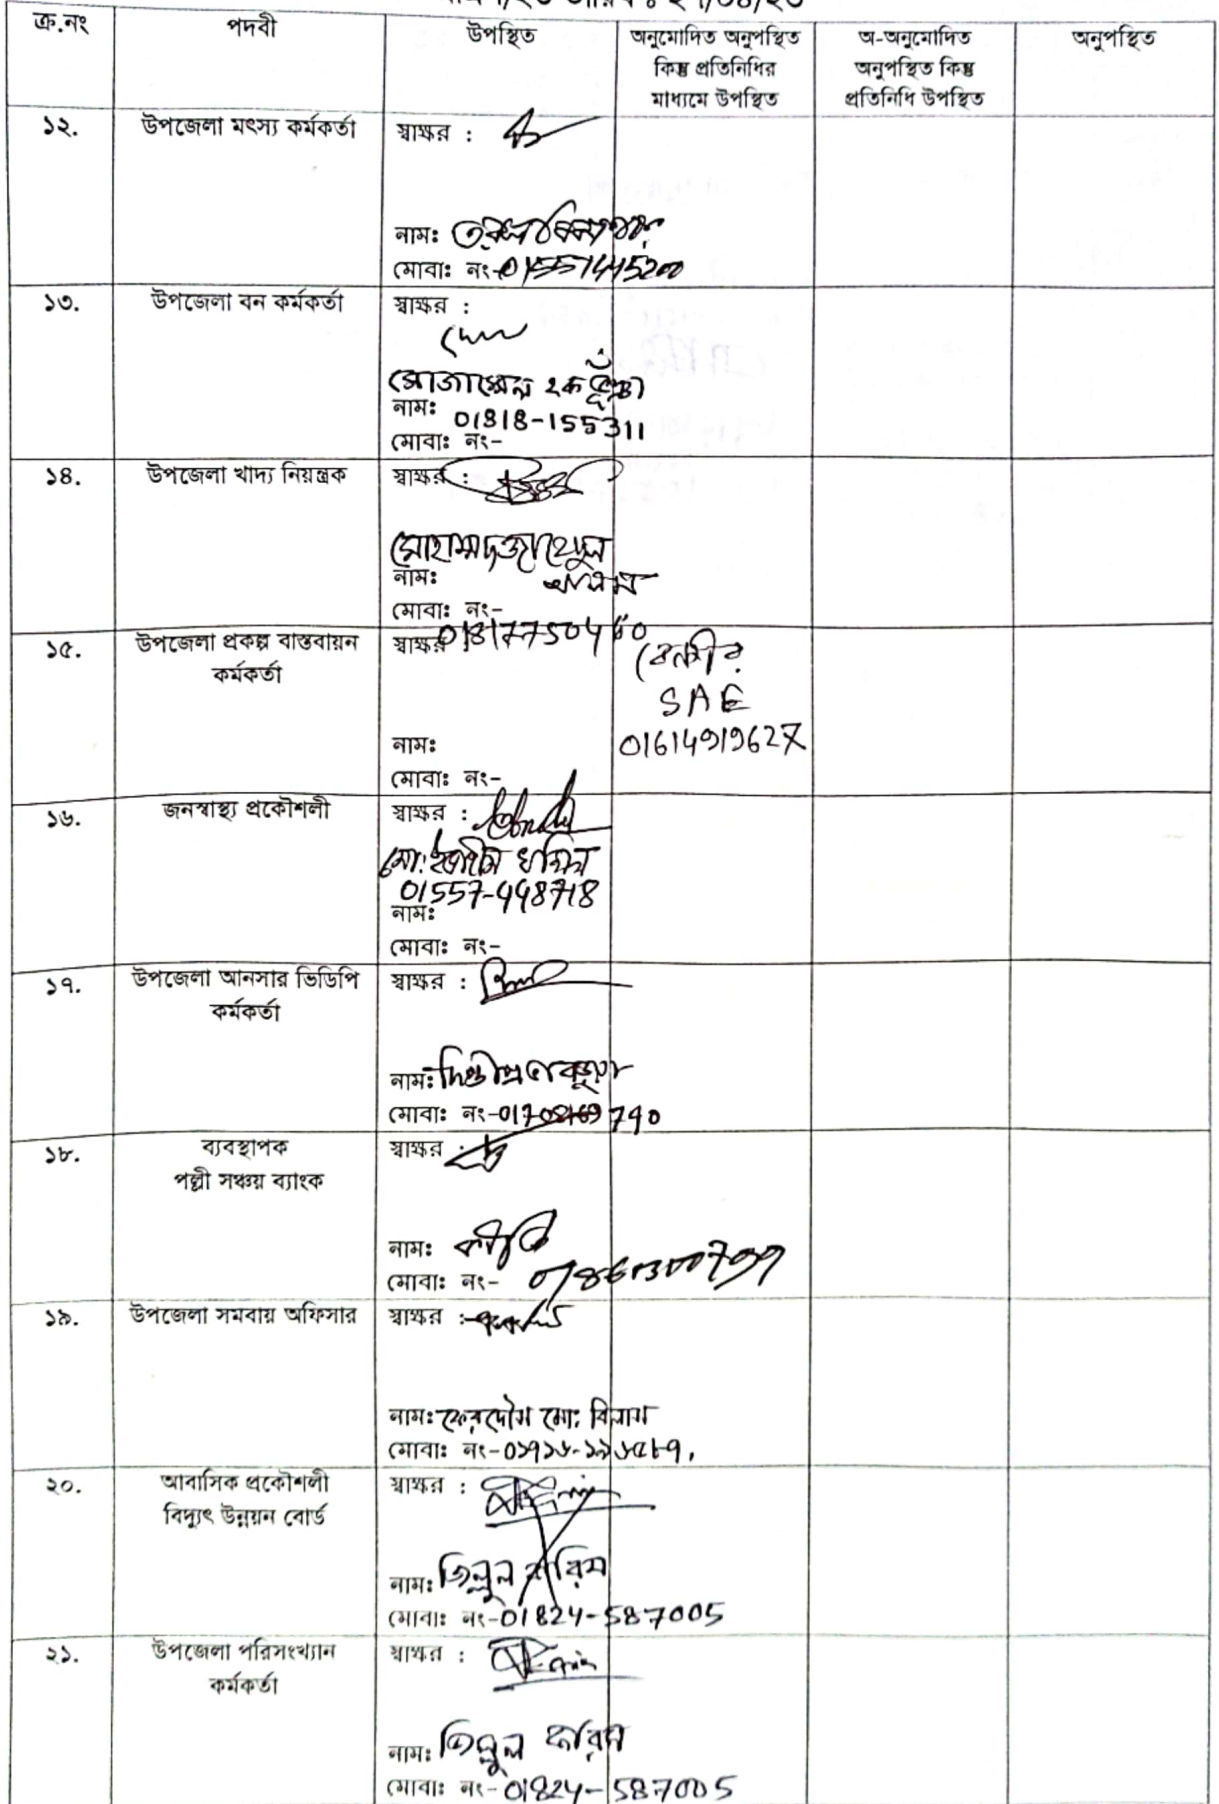 ক্র.নং পদবী উপস্থিত অনুমোদিত অনুপস্থিত কিন্তু প্রতিনিধির মাধ্যমে উপস্থিত অ-অনুমোদিত অনুপস্থিত কিন্তু প্রতিনিধি উপস্থিত অনুপস্থিত
১২. উপজেলা মৎস্য কর্মকর্তা স্বাক্ষর :
নাম:
মোবা: নং-01551445200
১৩. উপজেলা বন কর্মকর্তা স্বাক্ষর :
মোজাম্মেল হক ভূঁঞা
নাম:
01818-155311
মোবা: নং-
১৪. উপজেলা খাদ্য নিয়ন্ত্রক স্বাক্ষর :
মোহাম্মদ
নাম: আলম
মোবা: নং-
01817750460
১৫. উপজেলা প্রকল্প বাস্তবায়ন কর্মকর্তা স্বাক্ষর :
SAE
01614919627
নাম:
মোবা: নং-
১৬. জনস্বাস্থ্য প্রকৌশলী স্বাক্ষর :
মো: ইব্রাহীম খলিল
01557-448718
নাম:
মোবা: নং-
১৭. উপজেলা আনসার ভিডিপি কর্মকর্তা স্বাক্ষর :
নাম:
মোবা: নং-
১৮. ব্যবস্থাপক
পল্লী সঞ্চয় ব্যাংক স্বাক্ষর :
নাম:
মোবা: নং-
১৯. উপজেলা সমবায় অফিসার স্বাক্ষর :
নাম: ফেরদৌস মো:
মোবা: নং-
২০. আবাসিক প্রকৌশলী
বিদ্যুৎ উন্নয়ন বোর্ড স্বাক্ষর :
নাম: জিল্লুল করিম
মোবা: নং-01824-587005
২১. উপজেলা পরিসংখ্যান কর্মকর্তা স্বাক্ষর :
নাম: জিল্লুল করিম
মোবা: নং-01824-587005